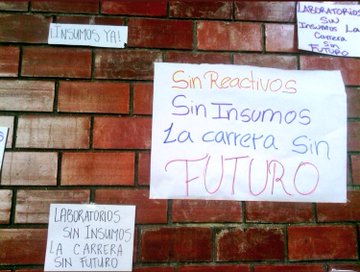 ¡INSUMOS YA!
LABORATORIOS
SIN
INSUMOS LA
Carrera
Sin
FUTURO
Sin Reactivos
Sin Insumos
La carrera sin
FUTURO
LABORATORIOS
SIN INSUMOS
LA CARRERA
SIN FUTURO